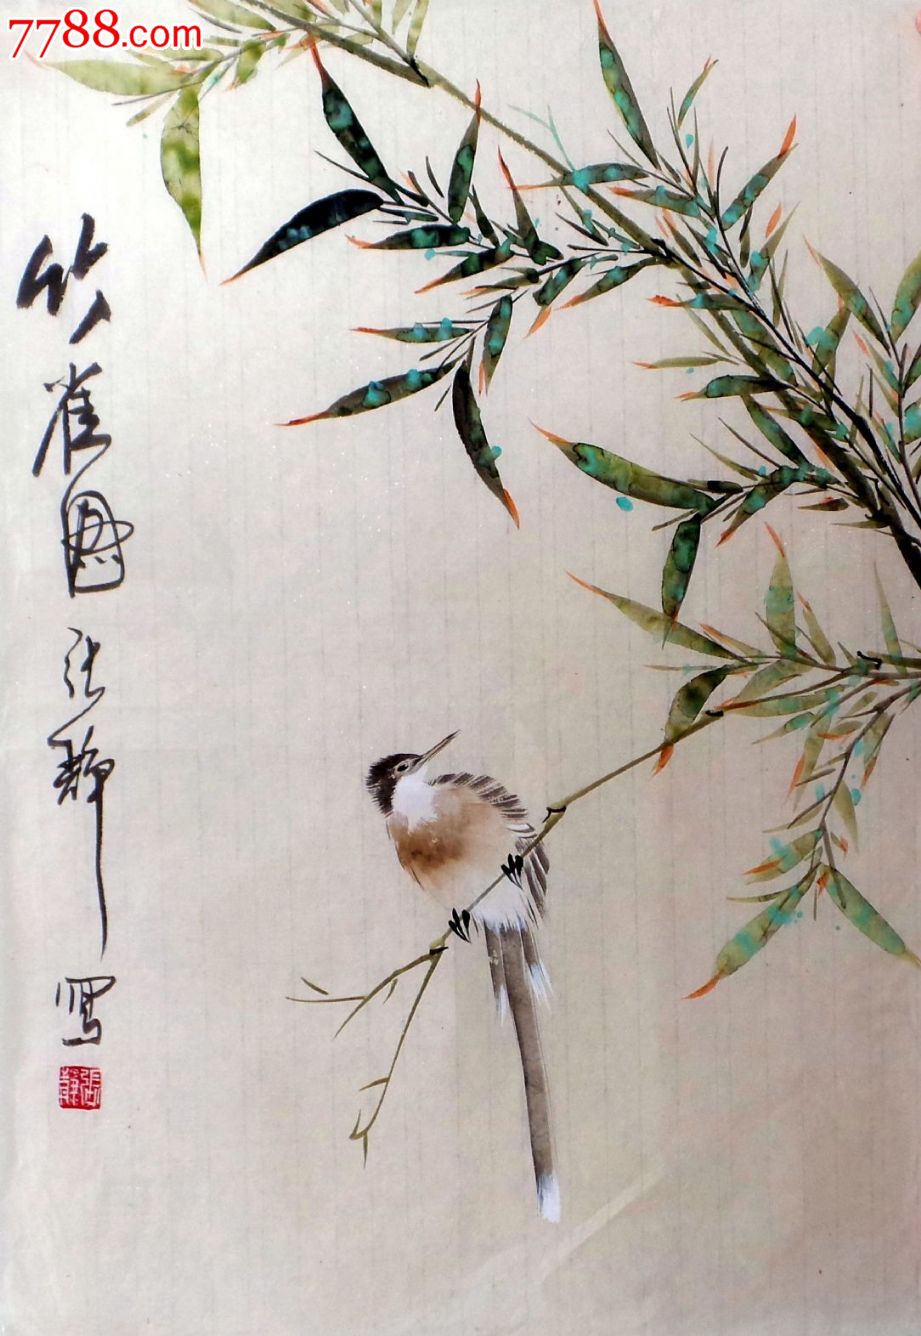 7788.com
竹雀图张静写
張静